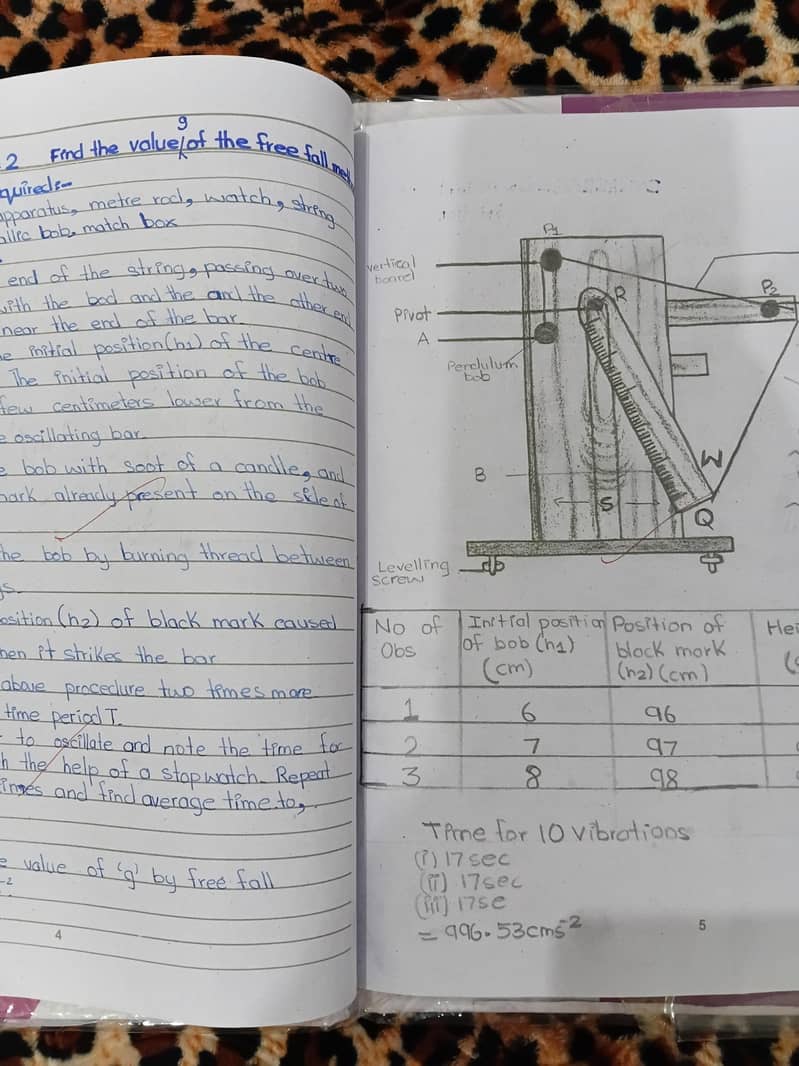 2 Find the value g of the free fall
quired:-
apparatus, metre rod, watch, string
bob, match box
end of the string, passing over two
with the bod and the and the other end
near the end of the bar
initial position (h1) of the centre
The initial position of the bob
few centimeters lower from the
oscillating bar.
bob with soot of a candle, and
mark already present on the side of
the bob by burning thread between
position (h2) of black mark caused
hen it strikes the bar
above procedure two times more
time period T.
to oscillate and note the time for
the help of a stopwatch. Repeat
times and find average time to,
value of 'g' by free fall
-2
4
P1
vertical
board
P2
R
Pivot
A
Pendulum
bob
W
B
S
Q
Levelling
screw
No of Obs | Initial position of bob (h1) (cm) | Position of block mark (h2) (cm) | Hei
1 6 96
2 7 97
3 8 98
Time for 10 vibrations
(i) 17 sec
(ii) 17sec
(iii) 17se
= 996.53cms-2
5